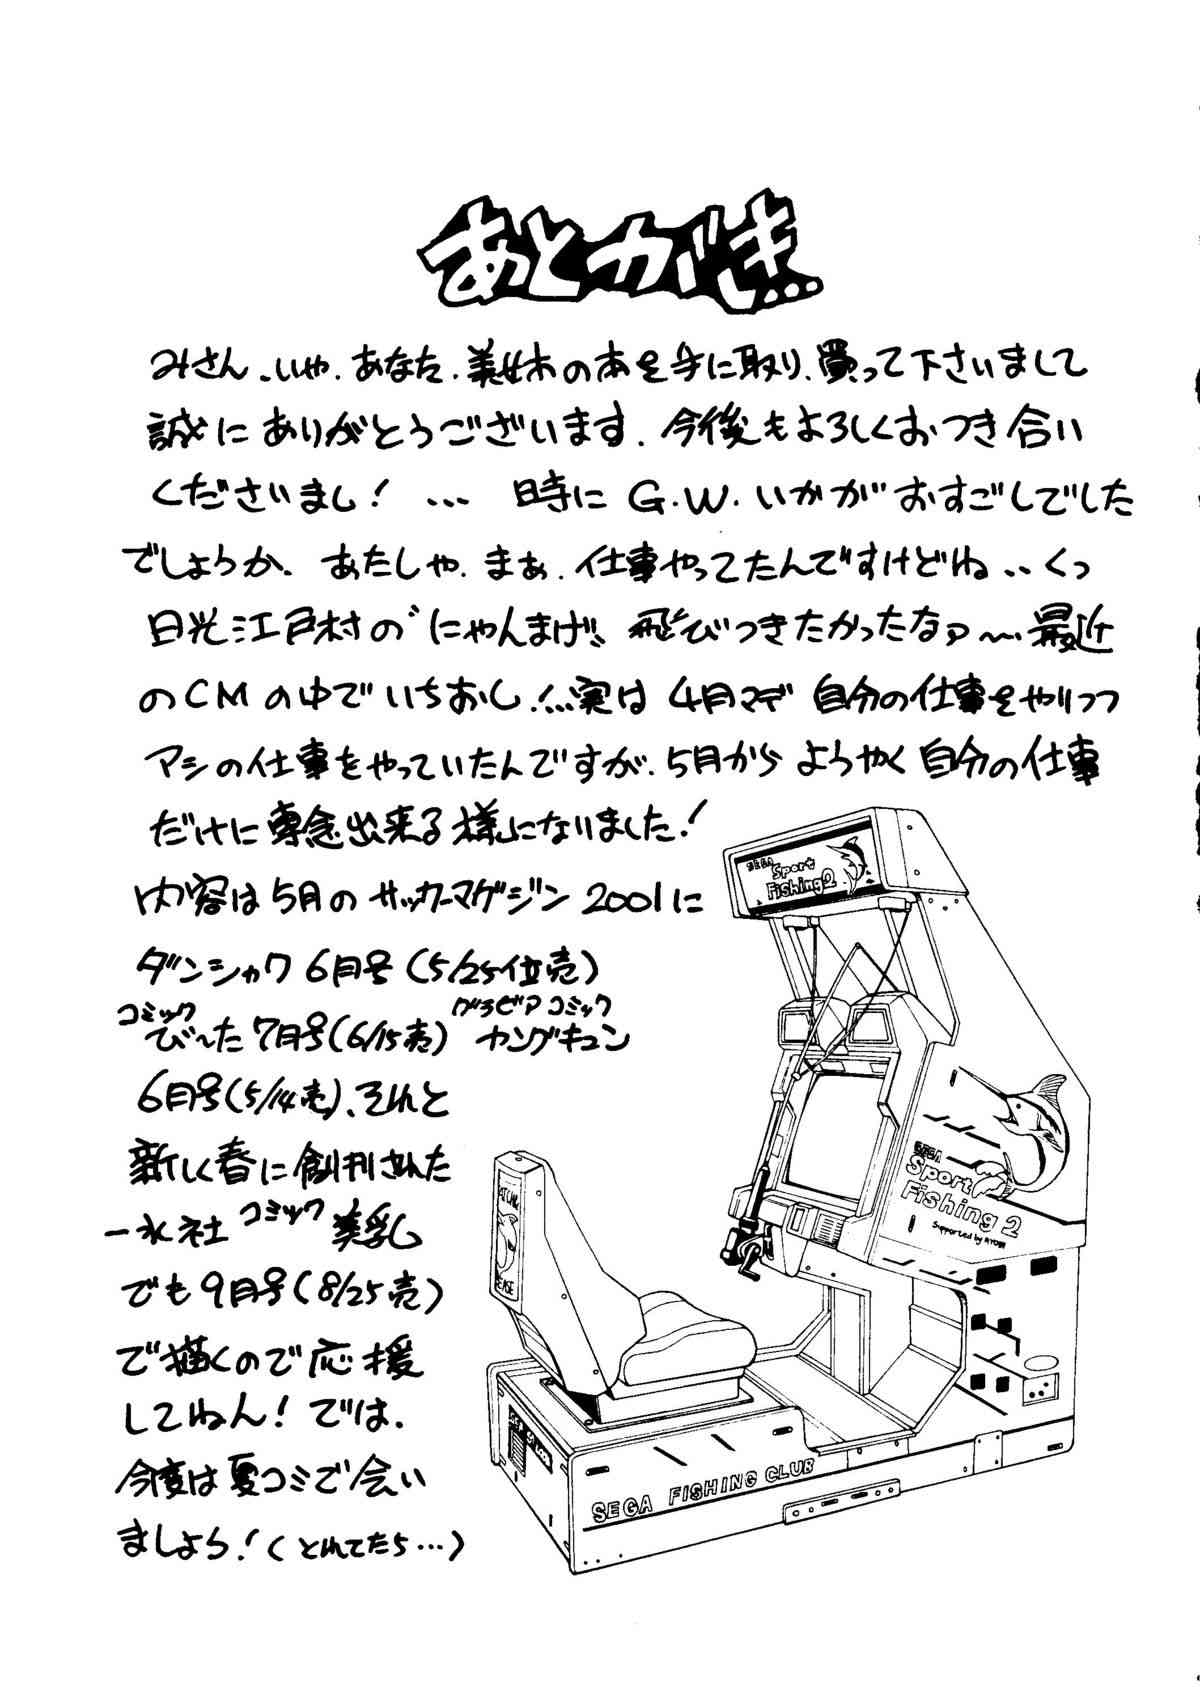 あとがき...
みさん、いや、あなた、美姝の本を手に取り、買って下さいまして
誠にありがとうございます。今後もよろしくおつき合い
くださいまし! … 時にG.W.いかがおすごしでした
でしょうか。あたしゃ、まぁ、仕事やってたんですけどね‥くっ
日光江戸村の"にゃんまげ"、飛びつきたかったなァ〜…最近
のCMの中でいちおし!…実は4月マデ自分の仕事をやりつつ
アシの仕事をやっていたんですが、5月からようやく自分の仕事
だけに専念出来る様になりました!
内容は5月のサッカーマガジン2001に
ダンシャク6月号(5/25位売)
コミック
び〜た7月号(6/15売)
グラビアコミック
ヤングキュン
6月号(5/14売)、それと
新しく春に創刊された
一水社 コミック 美乳
でも9月号(8/25売)
で描くので応援
してねん! では、
今度は夏コミで会い
ましょう!(とれてたら…)
SEGA
Sport
Fishing 2
SEGA
Sport
Fishing 2
Supported by RYOBI
SEGA FISHING CLUB